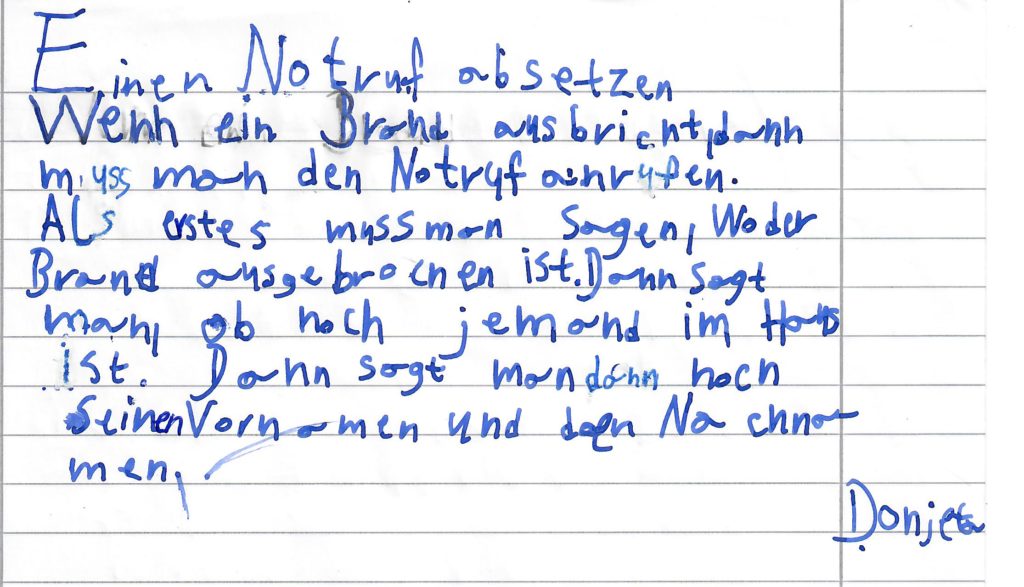 Einen Notruf absetzen
Wenn ein Brand ausbricht, dann
muss man den Notruf anrufen.
Als erstes muss man sagen, Wo der
Brand ausgebrochen ist. Dann sagt
man, ob noch jemand im Haus
ist. Dann sagt man dann noch
seinen Vornamen und den Nachna-
men,
Donjeta